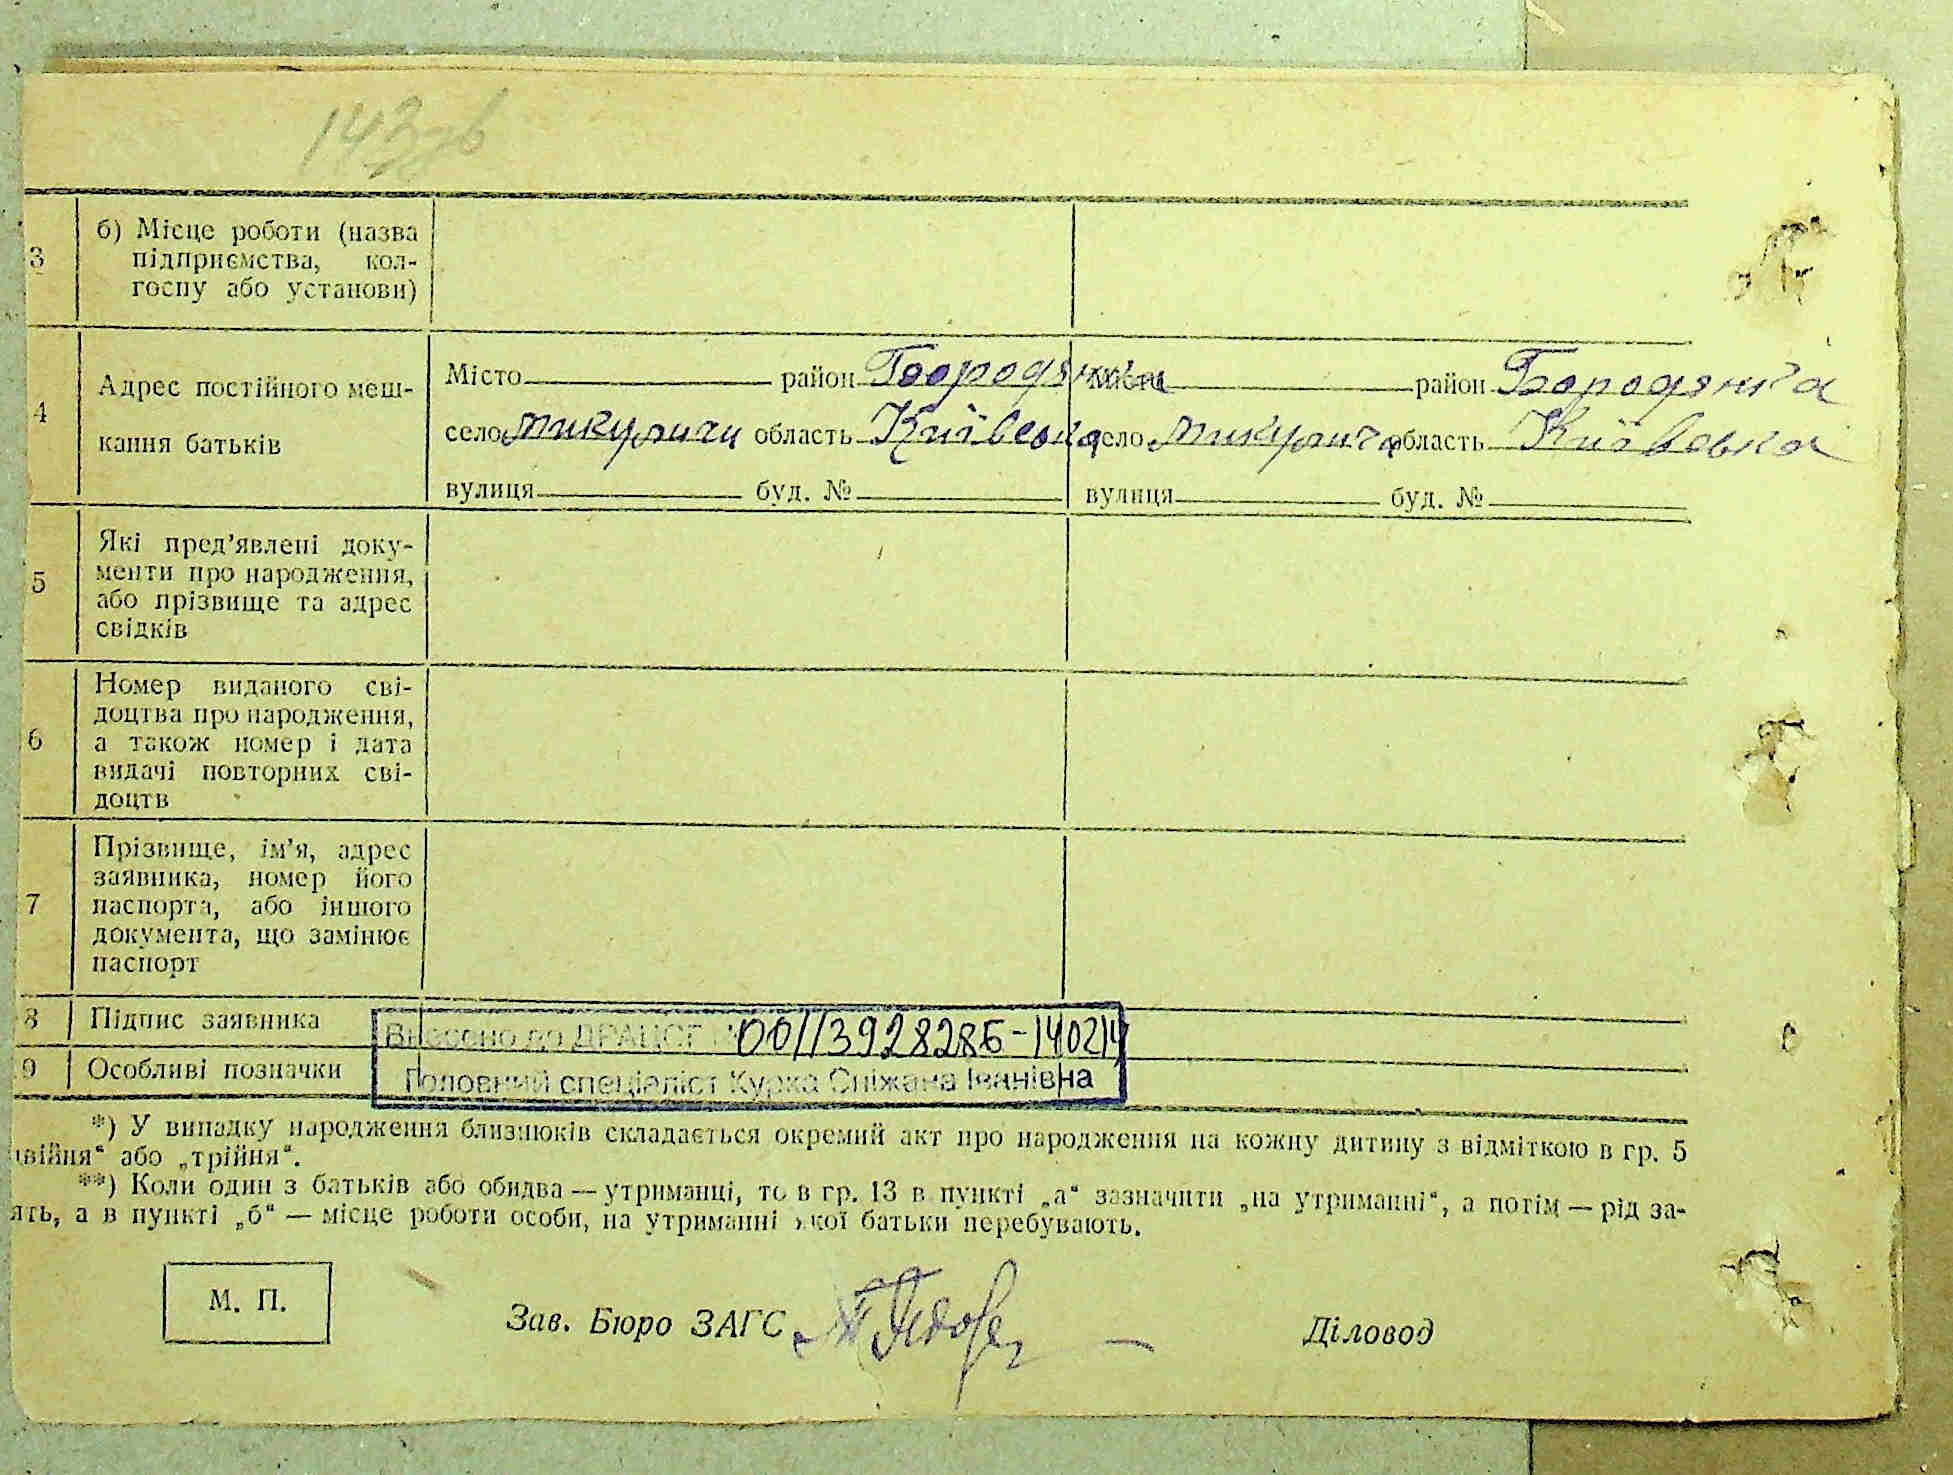 143 зв
3 б) Місце роботи (назва
підприємства, кол-
госпу або установи)
4 Адрес постійного меш-
кання батьків
Місто район Бородянка Місто район Бородянка
село Микуличи область Київська село Микуличи область Київська
вулиця буд. № вулиця буд. №
5 Які пред'явлені доку-
менти про народження,
або прізвище та адрес
свідків
6 Номер виданого сві-
доцтва про народження,
а також номер і дата
видачі повторних сві-
доцтв
7 Прізвище, ім'я, адрес
заявника, номер його
паспорта, або іншого
документа, що замінює
паспорт
8 Підпис заявника
Внесено до ДРАЦСГ 00113928286-14024
9 Особливі позначки
Головний спеціаліст Курка Сніжана Іванівна
*) У випадку народження близнюків складається окремий акт про народження на кожну дитину з відміткою в гр. 5
двійня“ або „трійня“.
**) Коли один з батьків або обидва — утриманці, то в гр. 13 в пункті „а“ зазначити „на утриманні“, а потім — рід за-
ять, а в пункті „б“ — місце роботи особи, на утриманні якої батьки перебувають.
М. П.
Зав. Бюро ЗАГС
Діловод